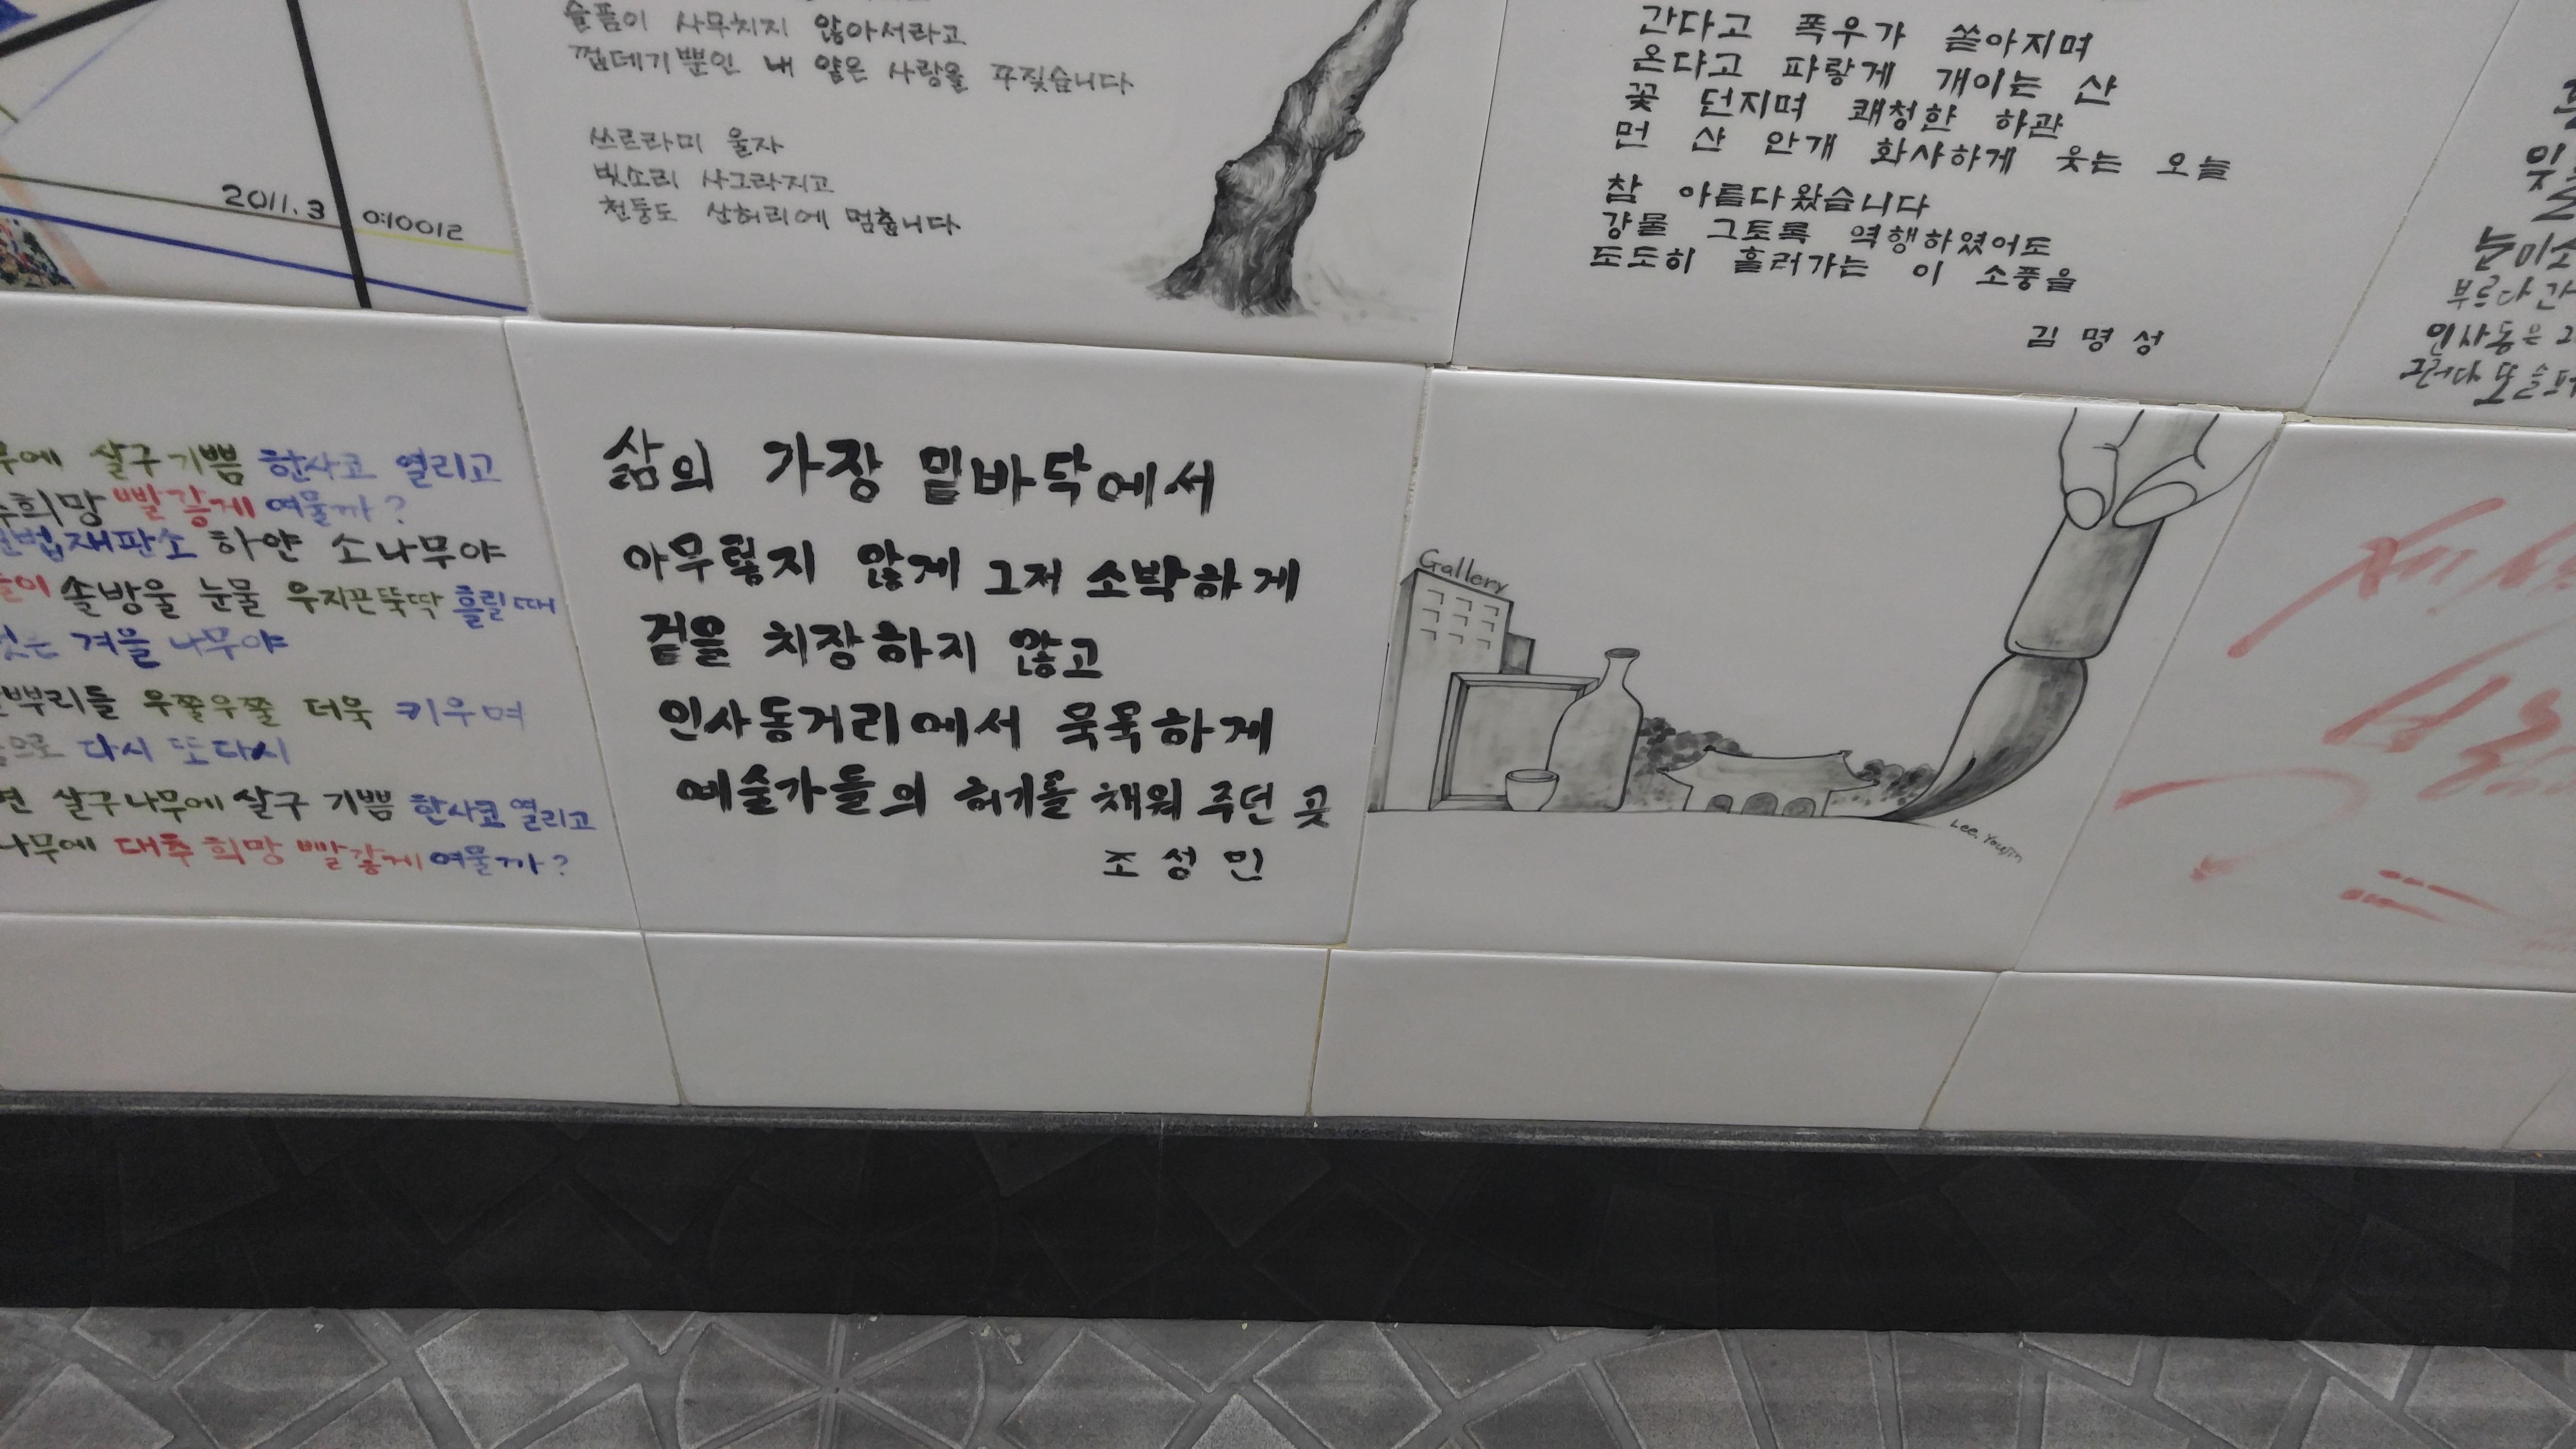 2011.3
0:10012
슬픔이 사무치지 않아서라고
껍데기뿐인 내 얇은 사랑을 꾸짖습니다
쓰르라미 울자
빗소리 사그라지고
천둥도 산허리에 멈춥니다
간다고 폭우가 쏟아지며
온다고 파랗게 개이는 산
꽃 던지며 쾌청한 하관
먼 산 안개 화사하게 웃는 오늘
참 아름다왔습니다
강물 그토록 역행하였어도
도도히 흘러가는 이 소풍을
김명성
눈미소
부르다 간
인사동은
그러다 또 슬퍼
무에 살구 기쁨 한사코 열리고
희망 빨갛게 여물까?
헌법재판소 하얀 소나무야
솔방울 눈물 우지끈뚝딱 흘릴 때
있는 겨울 나무야
뿌리들 우쭐우쭐 더욱 키우며
으로 다시 또다시
면 살구나무에 살구 기쁨 한사코 열리고
나무에 대추 희망 빨갛게 여물까?
삶의 가장 밑바닥에서
아무렇지 않게 그저 소박하게
겉을 치장하지 않고
인사동거리에서 묵묵하게
예술가들의 허기를 채워 주던 곳
조성민
Gallery
Lee. Youjin